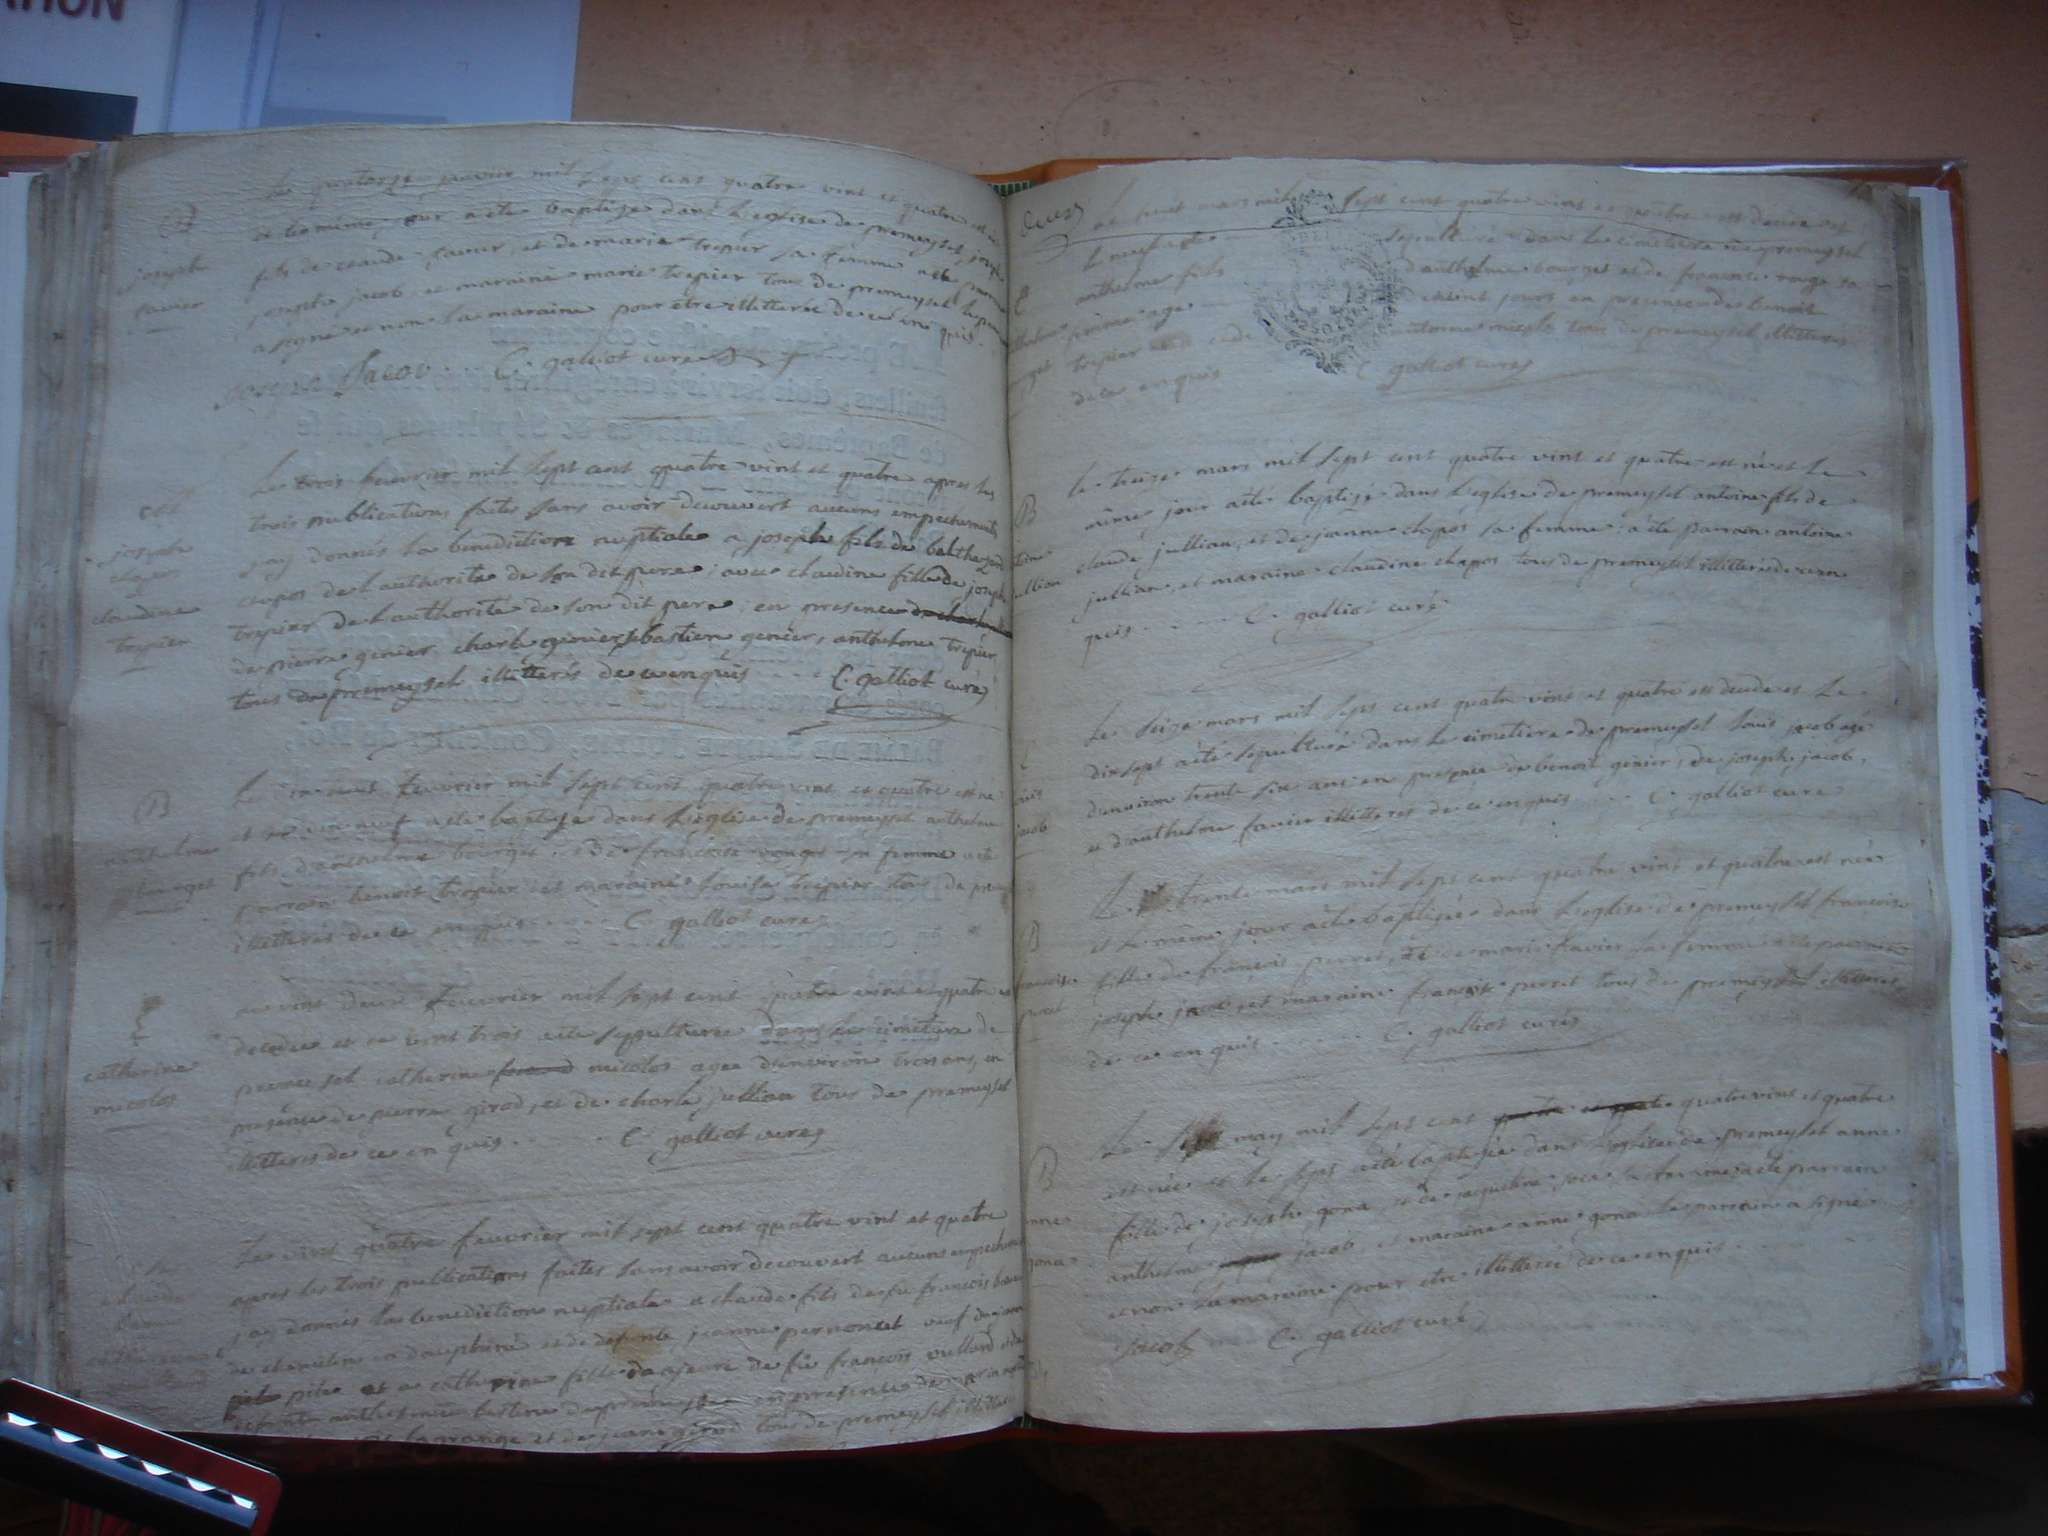 ATION
Le quatorze janvier mil sept cent quatre vint et quatre est né
et le même jour a ete baptize dans l'eglise de premeyzel joseph
fils de claude favier, et de marie trepier sa femme a ete parrain
joseph jacob, et maraine marie trepier tous de premeyzel le parrain
a signé et non la maraine pour être illitteree de ce en quis.
B
joseph
favier
joseph Jacob C. galliot curé
Le trois feuvrier mil sept cent quatre vint et quatre apres les
trois publications faites sans avoir decouvert aucuns empechements
j'ay donnés la benediction nuptiale a joseph fils de balthezard
chapos de l'authorité de son dit pere; avec claudine fille de joseph
trepier de l'authorité de son dit pere; en presence
de pierre genier charle genier sebastien genier, anthelme trepier
tous de premeyzel illitterés de ce enquis C. galliot curé
M
joseph
chapos
claudine
trepier
Le feuvrier mil sept cent quatre vint et quatre est né
et neuf a ete baptize dans l'eglise de premeyzel anthelme
fils d'anthelme bourget et de françoise rouge sa femme a ete
parrain benoit trepier et maraine louise trepier tous de
illitterés de ce en quis C. galliot curé
B
anthelme
bourget
Le vint deux feuvrier mil sept cent quatre vint et quatre est
decedée et le vint trois a ete sepulturée dans le cimetiere de
premeyzel catherine micolos agee d'environ trois ans, en
presence de pierre girod, et de charle jullian tous de premeyzel
illitterés de ce en quis C. galliot curé
catherine
micolos
Le vint quatre feuvrier mil sept cent quatre vint et quatre
apres les trois publications faites sans avoir decouvert aucuns empechements
j'ay donnés la benediction nuptiale a claude fils de fû françois
de en dauphiné et de defunte jeanne pernonet veuf de
pite et a catherine fille majeure de fû françois vullerd
de premeyzel en presence de
lagrange et de jean girod tous de premeyzel
Le huit mars mil sept cent quatre vint et quatre est decedé et
le neuf a ete sepulturé dans le cimetiere de premeyzel
anthelme fils d'anthelme bourget et de françoise rouge sa
femme agé de vint jours en presence de benoit
trepier et de antoine micolos tous de premeyzel illitterés
de ce en quis C. galliot curé
Le treize mars mil sept cent quatre vint et quatre est né et le
même jour a ete baptizé dans l'eglise de premeyzel antoine fils de
claude jullian, et de jeanne chapos sa femme; a ete parrain antoine
jullian, et maraine claudine chapos tous de premeyzel illitterés de ce en
quis C. galliot curé
B
Le seize mars mil sept cent quatre vint et quatre est decedé et le
dix sept a ete sepulturé dans le cimetiere de premeyzel louis jacob agé
d'environ trente six ans en presence de benoit genier, de joseph jacob,
et d'anthelme favier illitterés de ce enquis C. galliot curé
jacob
Le trente mars mil sept cent quatre vint et quatre est née
et le même jour a ete baptizée dans l'eglise de premeyzel françoise
fille de françois perret, et de marie favier sa femme a ete parrain
joseph jacob et maraine françoise perret tous de premeyzel illitterés
de ce en quis C. galliot curé
B
Le sept may mil sept cent quatre vint et quatre
est née et le sept a ete baptizée dans l'eglise de premeyzel anne
fille de joseph gona, et de jaqueline sa femme a ete parrain
anthelme jacob et maraine anne gona le parrain a signé
et non la maraine pour etre illitterée de ce enquis
B
gona
Jacob C. galliot curé